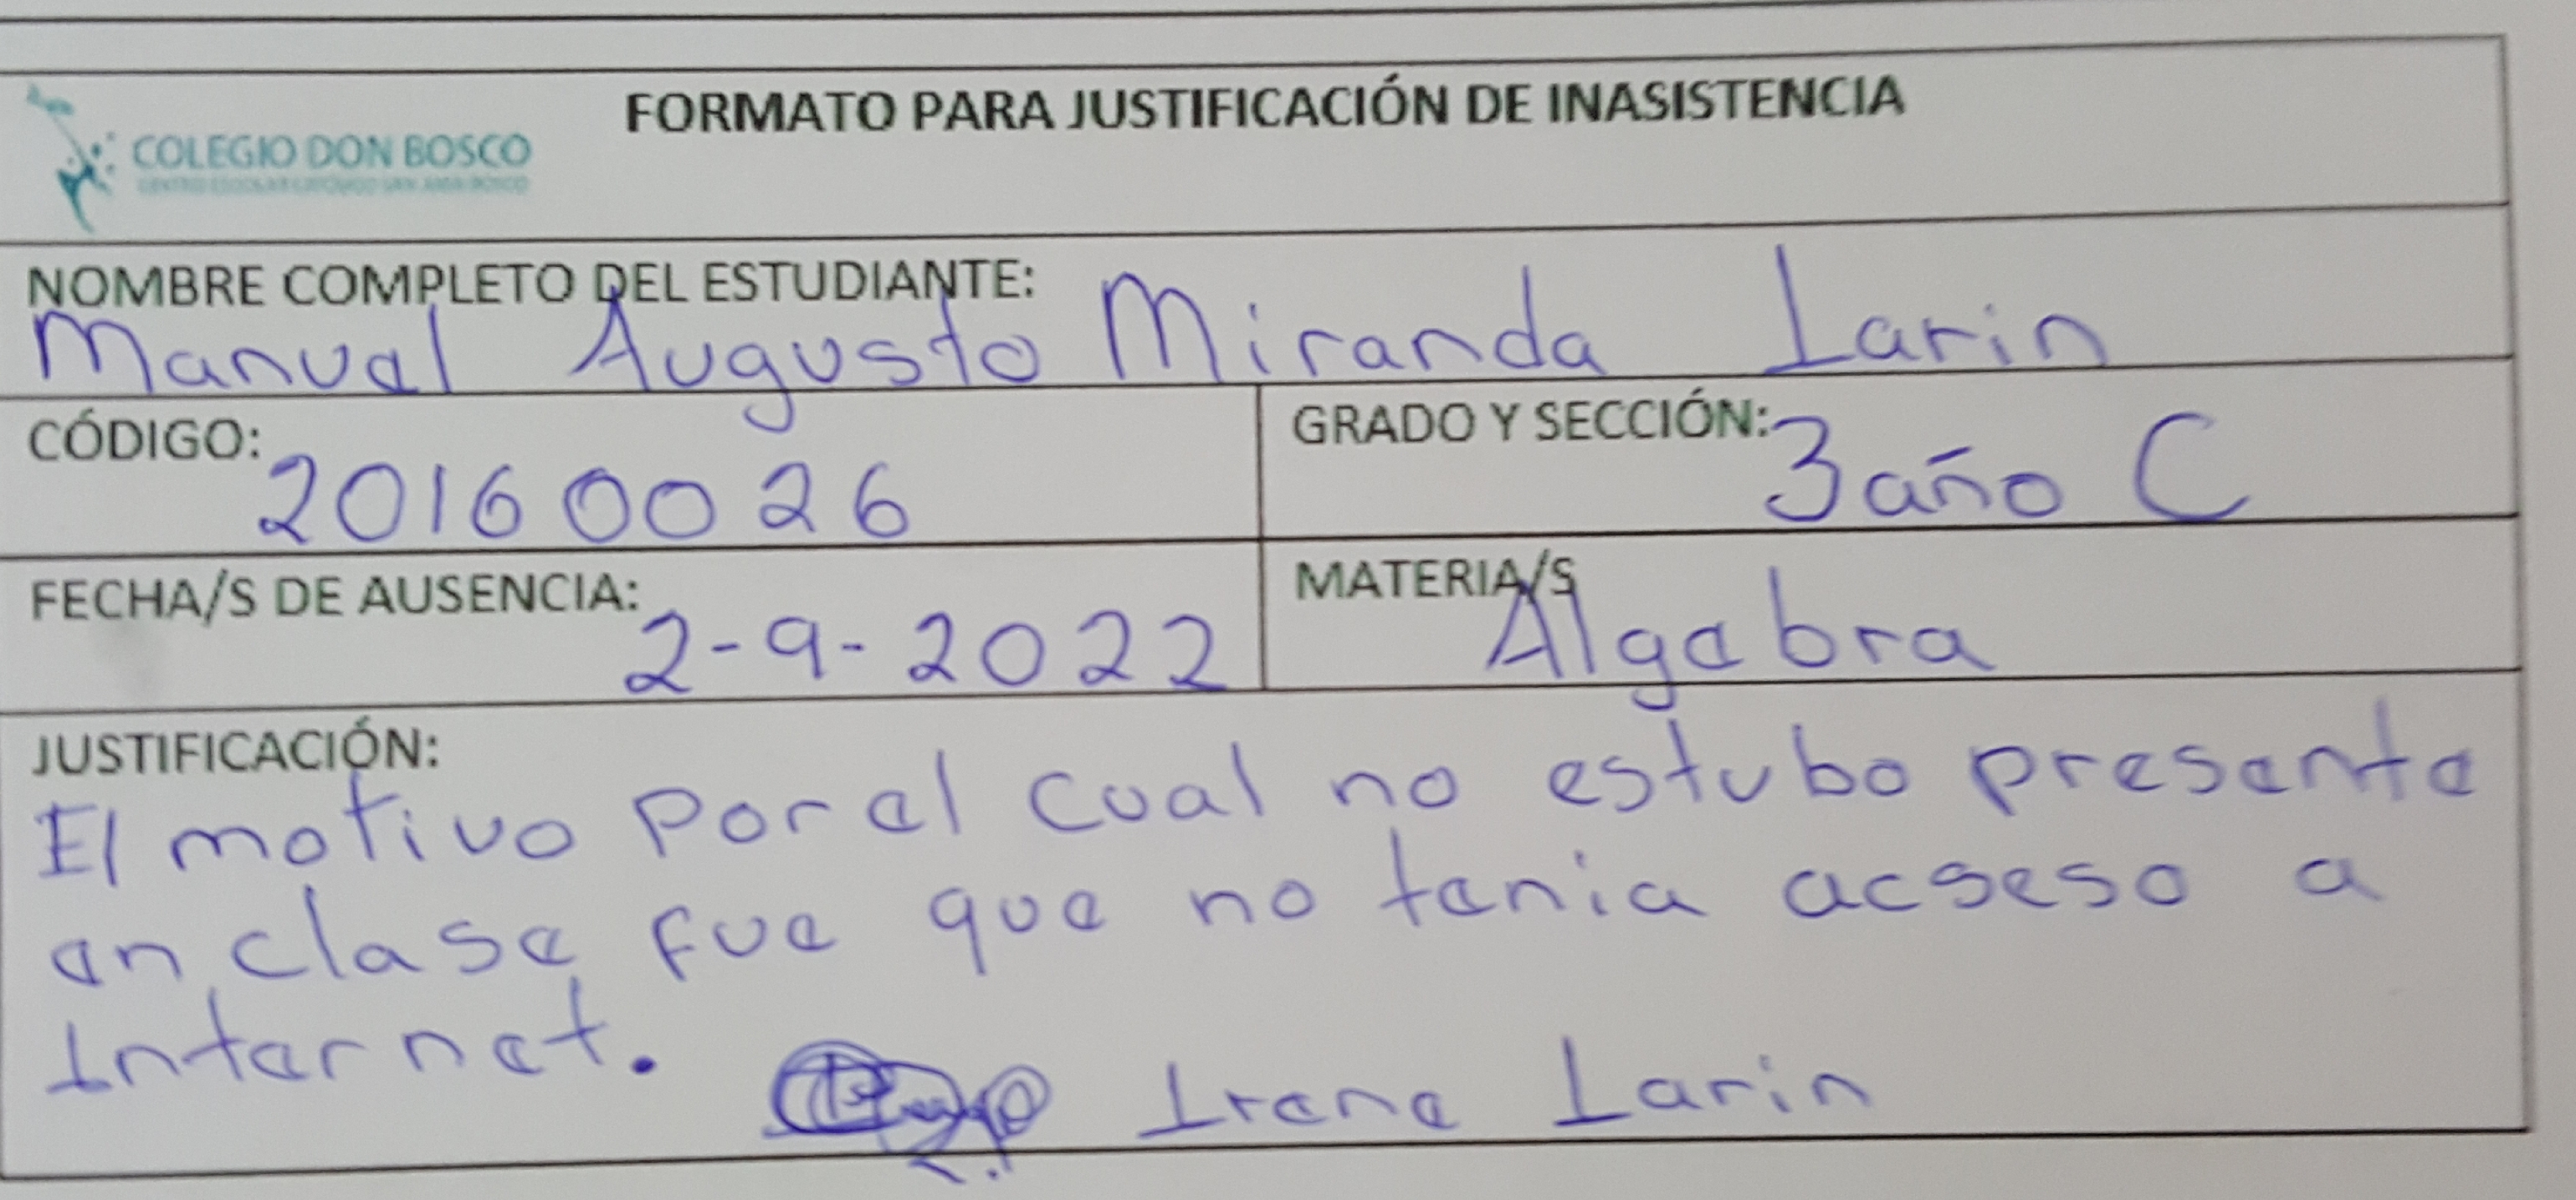 FORMATO PARA JUSTIFICACIÓN DE INASISTENCIA
COLEGIO DON BOSCO
NOMBRE COMPLETO DEL ESTUDIANTE:
Manuel Augusto Miranda Larin
CÓDIGO: 20160026
GRADO Y SECCIÓN: 3 año C
FECHA/S DE AUSENCIA: 2-9-2022
MATERIA/S Algebra
JUSTIFICACIÓN:
El motivo por el cual no estubo presente
en clase fue que no tenia acseso a
Internet.
Irene Larin